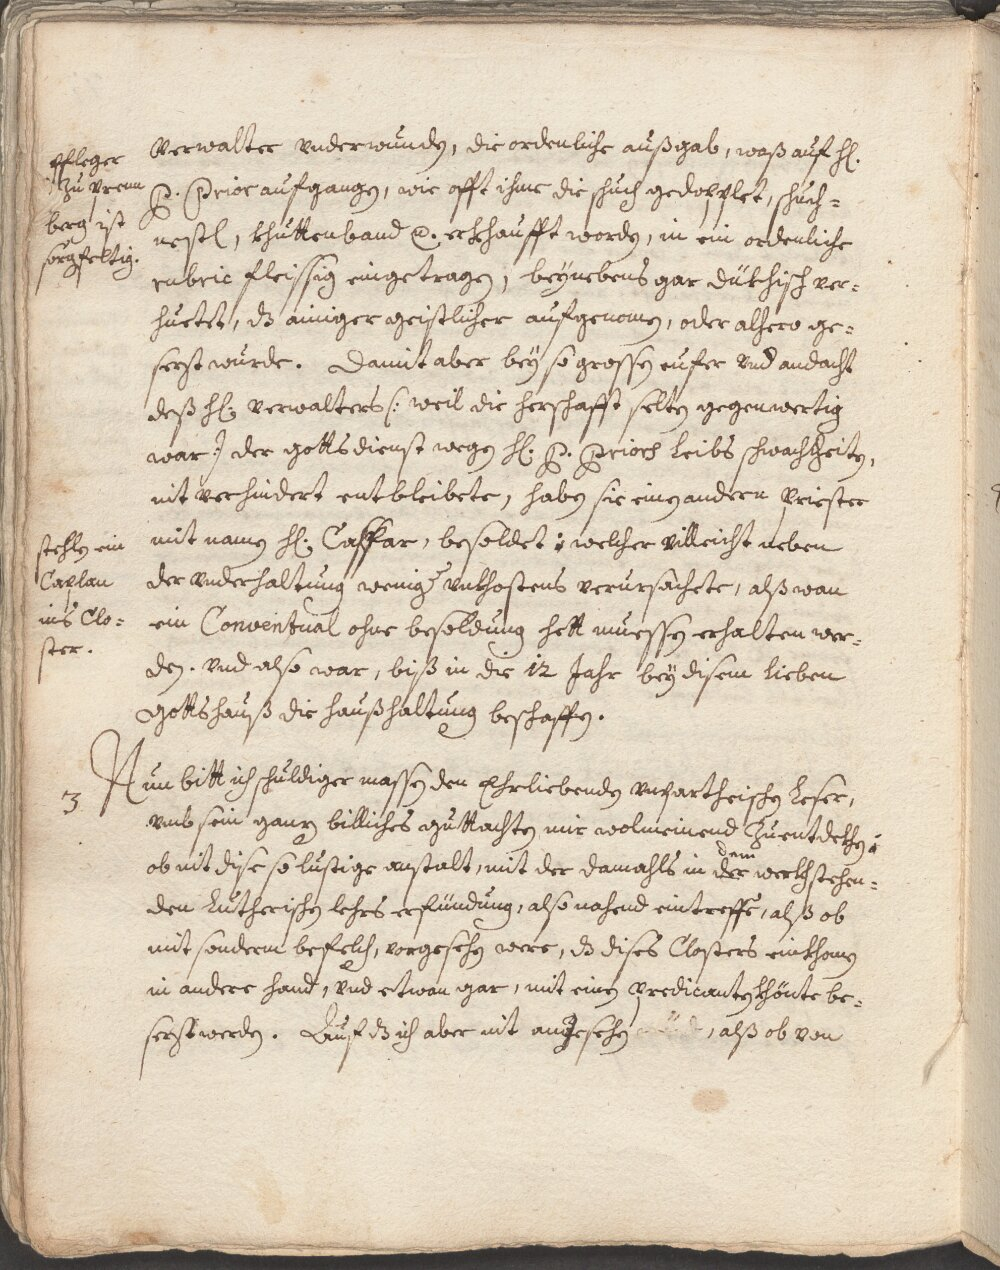 Pfleger
zu Prenn
berg ist
sorgfeltig.
Verwalter underwunden, die ordenliche außgab, waß auf H.
P. Prior aufgangen, wie offt ihme die schuch gedopplet, schuch-
nestl, khuttenband etc. erkhaufft worden, in ein ordenliche
rubric fleissig eingetragen, beynebens gar dükhisch ver-
huetet, dz ainiger geistlicher aufgenomen, oder alhero ge-
sezt wurde. Damit aber bey so grossen eufer und andacht
deß H. Verwalters (: weil die herschafft selten gegenwertig
war :) der gottsdienst wegen H. P. Priors leibs schwachheiten,
nit verhindert entbleibete, haben sie einen andern Priester
stehlen ein
Caplan
ins Clo-
ster.
mit namen H. Caspar, besoldet; welcher villeicht neben
der underhaltung weniger unkhostens verursachete, alß wan
ein Conventual ohne besoldung hett muessen erhalten wer-
den. Und also war, biß in die 12 Jahr bey disem lieben
Gottshauß die haußhaltung beschaffen.
3. Nun bitt ich schuldiger massen den Ehrliebenden unpartheischen Leser,
umb sein ganz billiches guttachten mir wolmeinend zuentdekhen;
ob nit dise so lustige anstalt, mit der damahls in der dem werkhstehen-
den Lutherischen lehrs erfündung, also nahend eintreffe, alß ob
mit sonderm befelch, vorgesehen were, dz dises Closters einkhomen
in andere hand, und etwan gar, mit einen Predicanten khönte be-
sezt werden. Auf dz ich aber nit angesehen , alß ob von